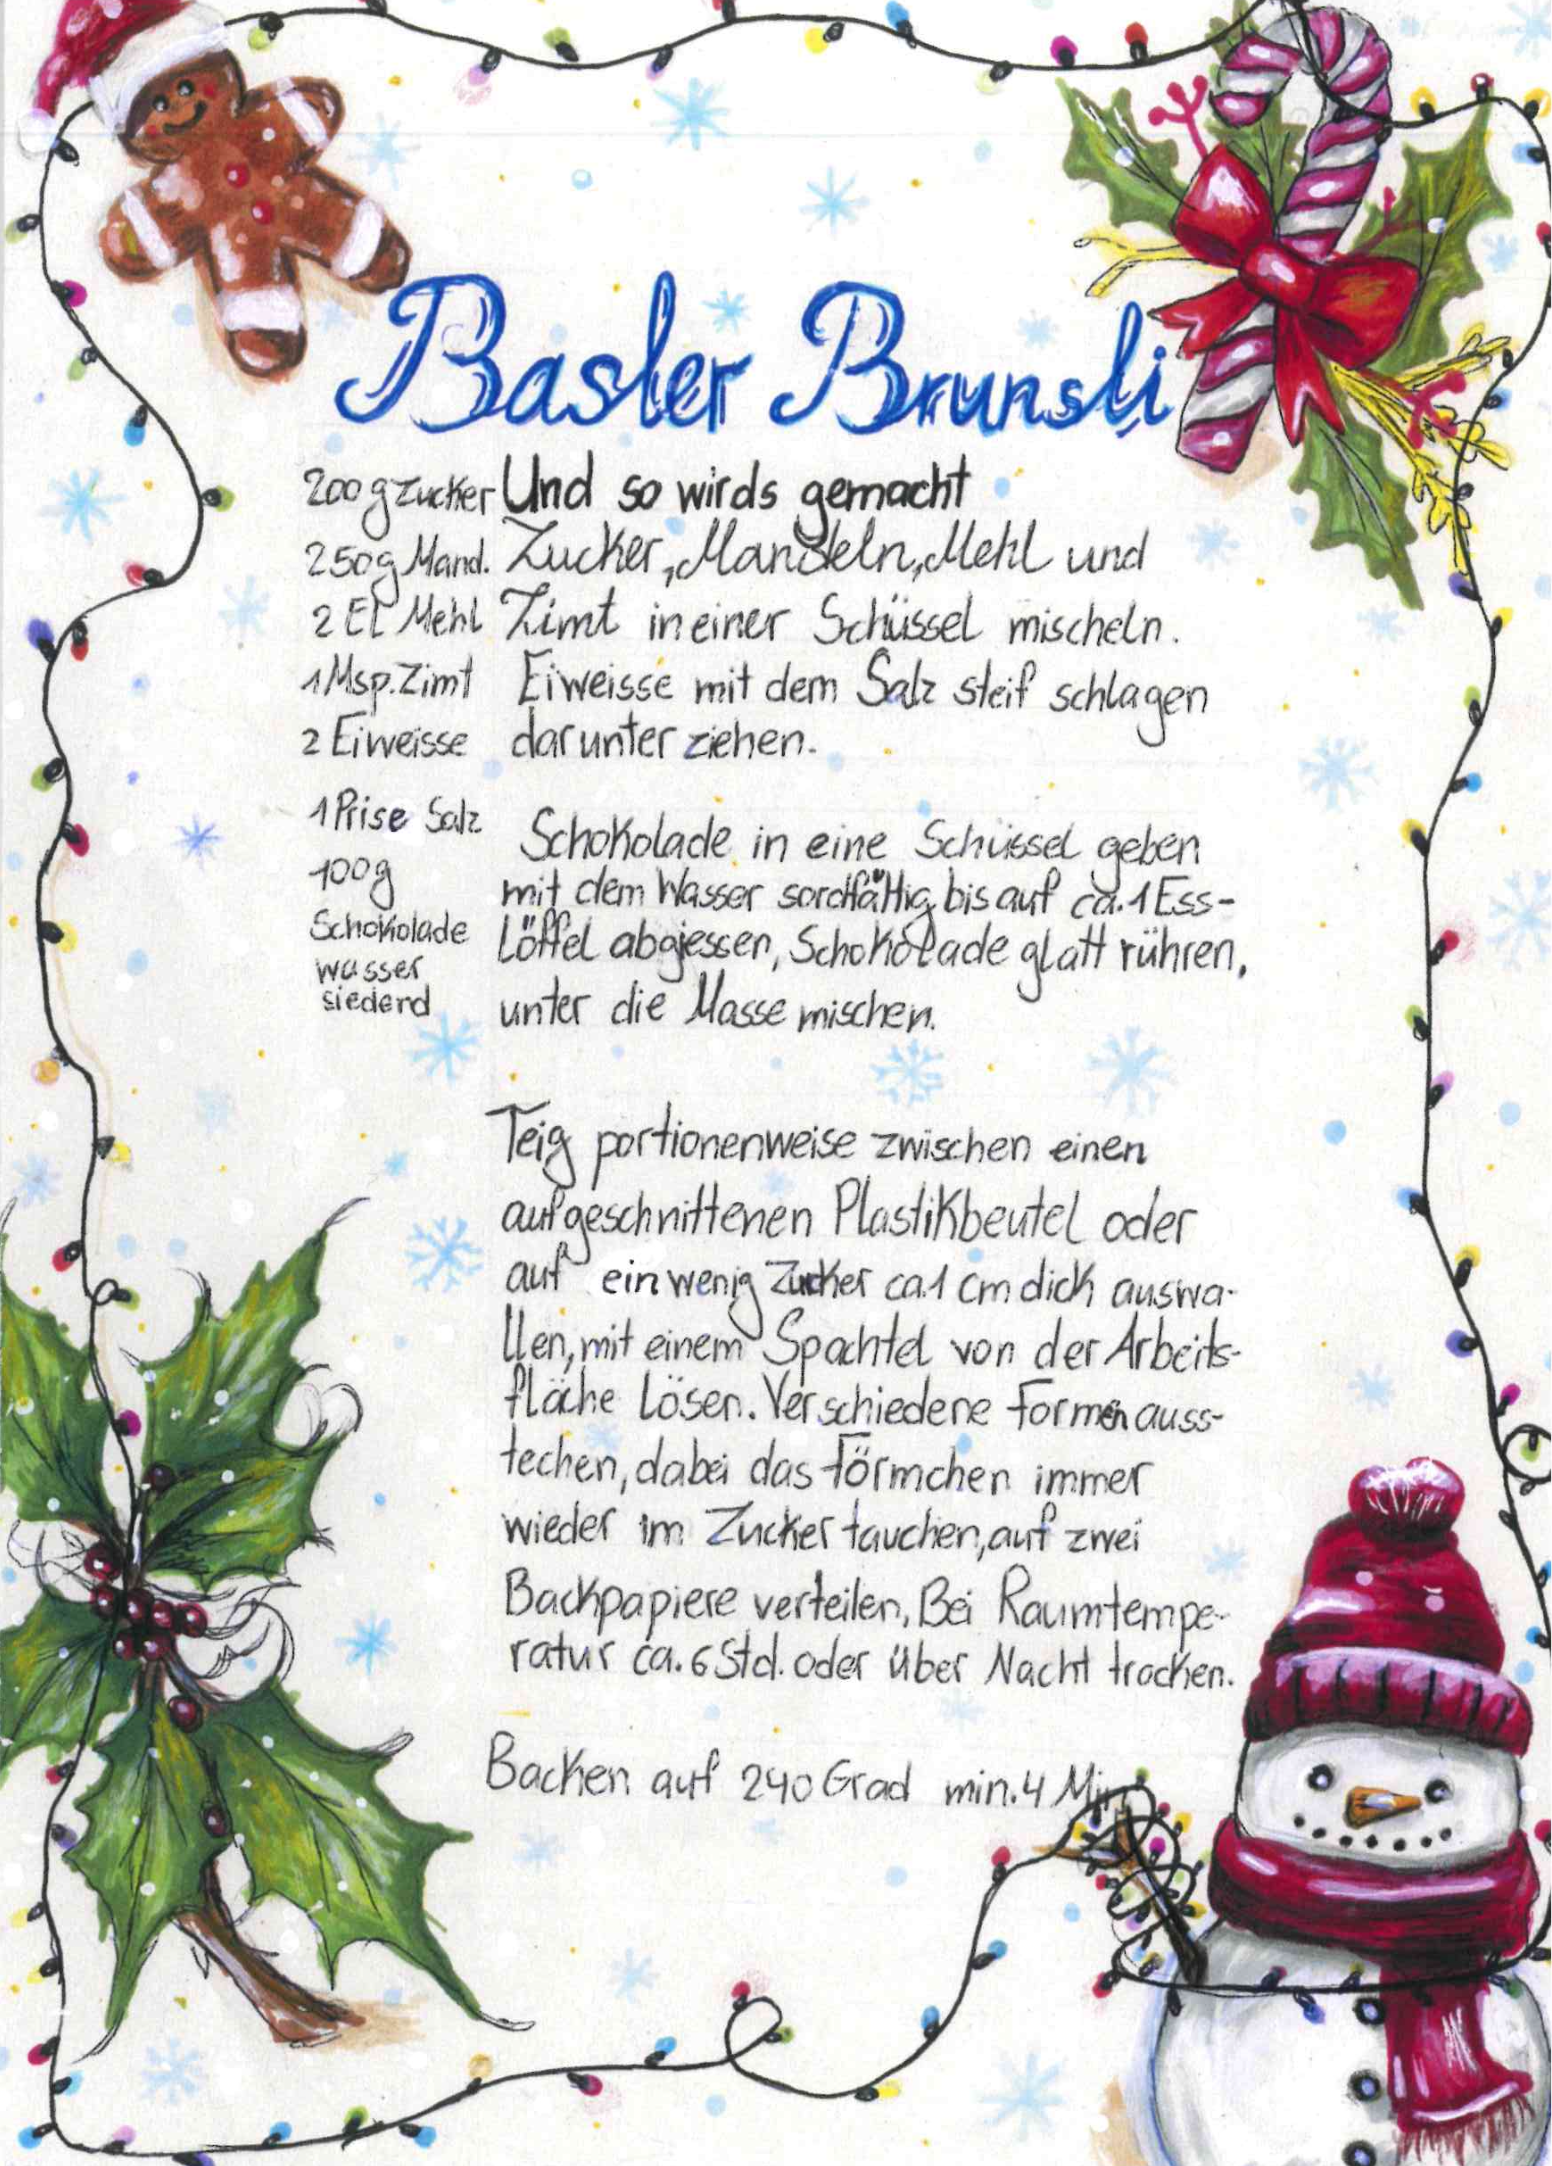 Basler Brunsli
200g Zucker
250g Mand.
2 EL Mehl
1 Msp. Zimt
2 Eiweisse
1 Prise Salz
100g
Schokolade
wasser
siederd
Und so wirds gemacht
Zucker, Mandeln, Mehl und
Zimt in einer Schüssel mischeln.
Eiweisse mit dem Salz steif schlagen
darunter ziehen.
Schokolade in eine Schüssel geben
mit dem Wasser sordfältig bis auf ca. 1 Ess-
Löffel abgiessen, Schokolade glatt rühren,
unter die Masse mischen.
Teig portionenweise zwischen einen
aufgeschnittenen Plastikbeutel oder
auf ein wenig Zucker ca. 1 cm dick auswa-
llen, mit einem Spachtel von der Arbeits-
fläche lösen. Verschiedene Formen auss-
techen, dabei das Förmchen immer
wieder im Zucker tauchen, auf zwei
Backpapiere verteilen, Bei Raumtempe-
ratur ca. 6 Std. oder über Nacht trocken.
Backen auf 240 Grad min. 4 Min